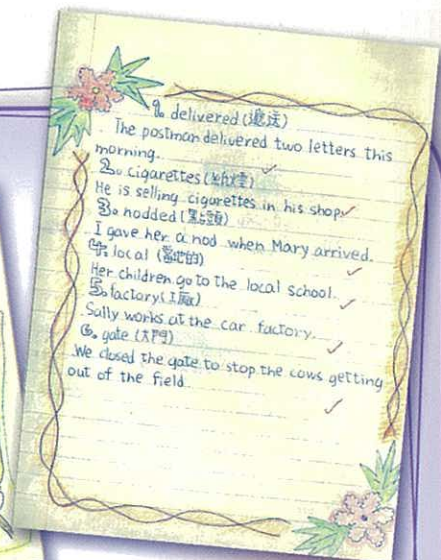 1. delivered (遞送)
The postman delivered two letters this
morning.
2. cigarettes (紙煙)
He is selling cigarettes in his shop.
3. nodded (點頭)
I gave her a nod when Mary arrived.
4. local (當地的)
Her children go to the local school.
5. factory (工廠)
Sally works at the car factory.
6. gate (大門)
We closed the gate to stop the cows getting
out of the field